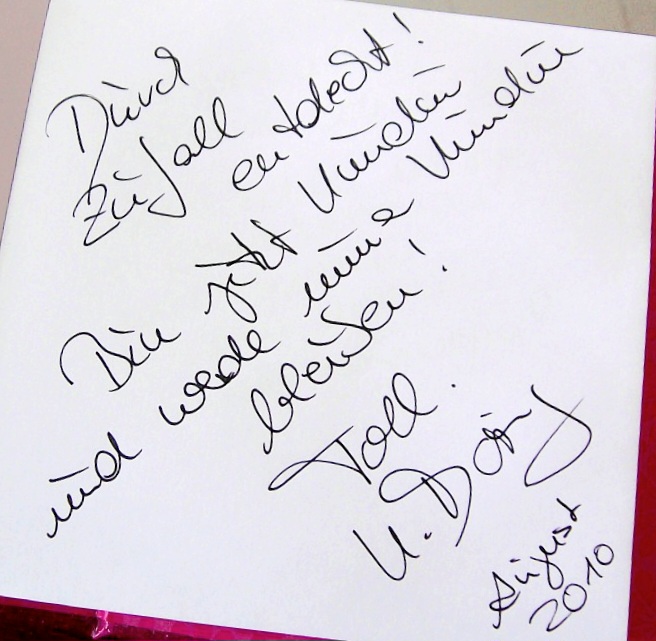 Durch
Zufall entdeckt!
Bin jetzt Kundin
und werde immer Kundin
bleiben!
Toll.
U.
August
2010